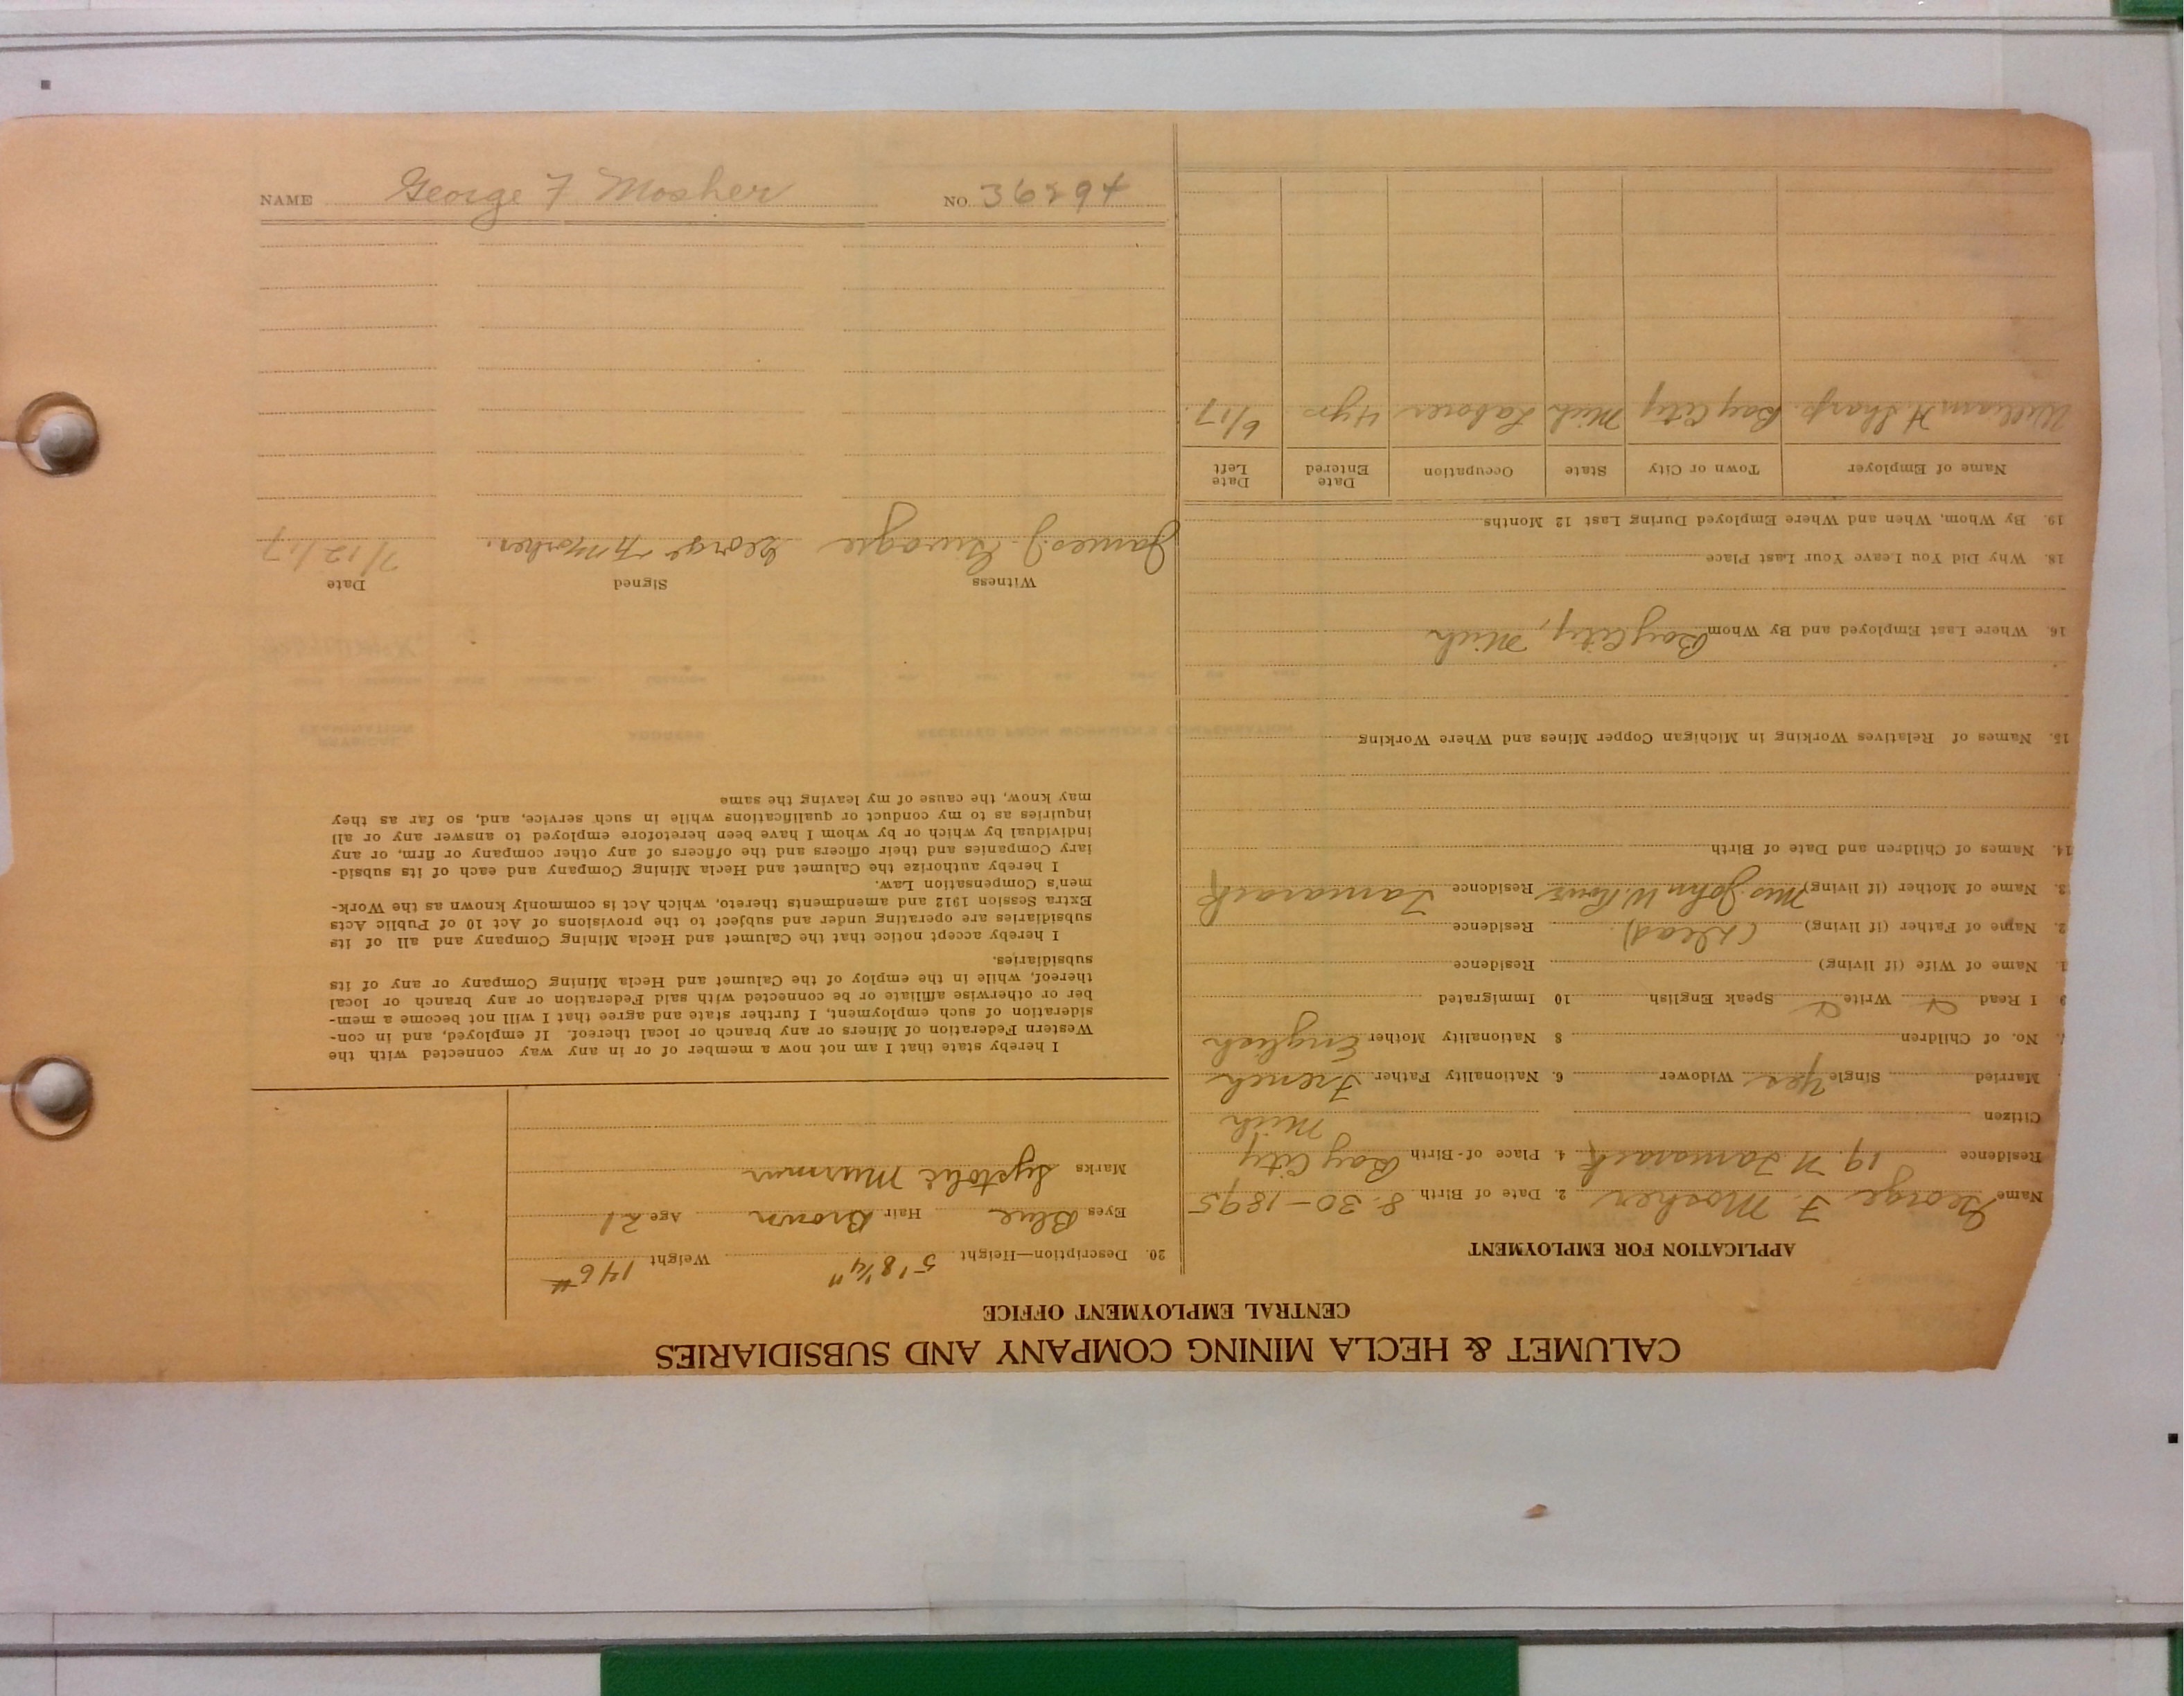 CALUMET & HECLA MINING COMPANY AND SUBSIDIARIES
CENTRAL EMPLOYMENT OFFICE
APPLICATION FOR EMPLOYMENT
Name George F. Mosher 2. Date of Birth 8-30-1895
Residence 19 N Tamarack 4. Place of Birth Bay City
Mich
Citizen
Married Single Yes Widower 6. Nationality Father French
No. of Children 8 Nationality Mother English
I Read Write Speak English 10 Immigrated
1. Name of Wife (if living) Residence
2. Name of Father (if living) (Dead) Residence
3. Name of Mother (if living) Mrs John W. Residence Tamarack
14. Names of Children and Date of Birth
15. Names of Relatives Working in Michigan Copper Mines and Where Working
16. Where Last Employed and By Whom Bay City, Mich
18. Why Did You Leave Your Last Place
19. By Whom, When and Where Employed During Last 12 Months
Name of Employer Town or City State Occupation Date Entered Date Left
William H. Sharp. Bay City Mich Laborer 4 yrs 6/17
20. Description—Height 5' 8 1/4" Weight 146 #
Eyes Blue Hair Brown Age 21
Marks Systolic Murmur
I hereby state that I am not now a member of or in any way connected with the
Western Federation of Miners or any branch or local thereof. If employed, and in con-
sideration of such employment, I further state and agree that I will not become a mem-
ber or otherwise affiliate or be connected with said Federation or any branch or local
thereof, while in the employ of the Calumet and Hecla Mining Company or any of its
subsidiaries.
I hereby accept notice that the Calumet and Hecla Mining Company and all of its
subsidiaries are operating under and subject to the provisions of Act 10 of Public Acts
Extra Session 1912 and amendments thereto, which Act is commonly known as the Work-
men's Compensation Law.
I hereby authorize the Calumet and Hecla Mining Company and each of its subsid-
iary Companies and their officers and the officers of any other company or firm, or any
individual by which or by whom I have been heretofore employed to answer any or all
inquiries as to my conduct or qualifications while in such service, and, so far as they
may know, the cause of my leaving the same
Witness Signed Date
James J. George F. Mosher. 7/12/17
NAME George F Mosher NO. 36294